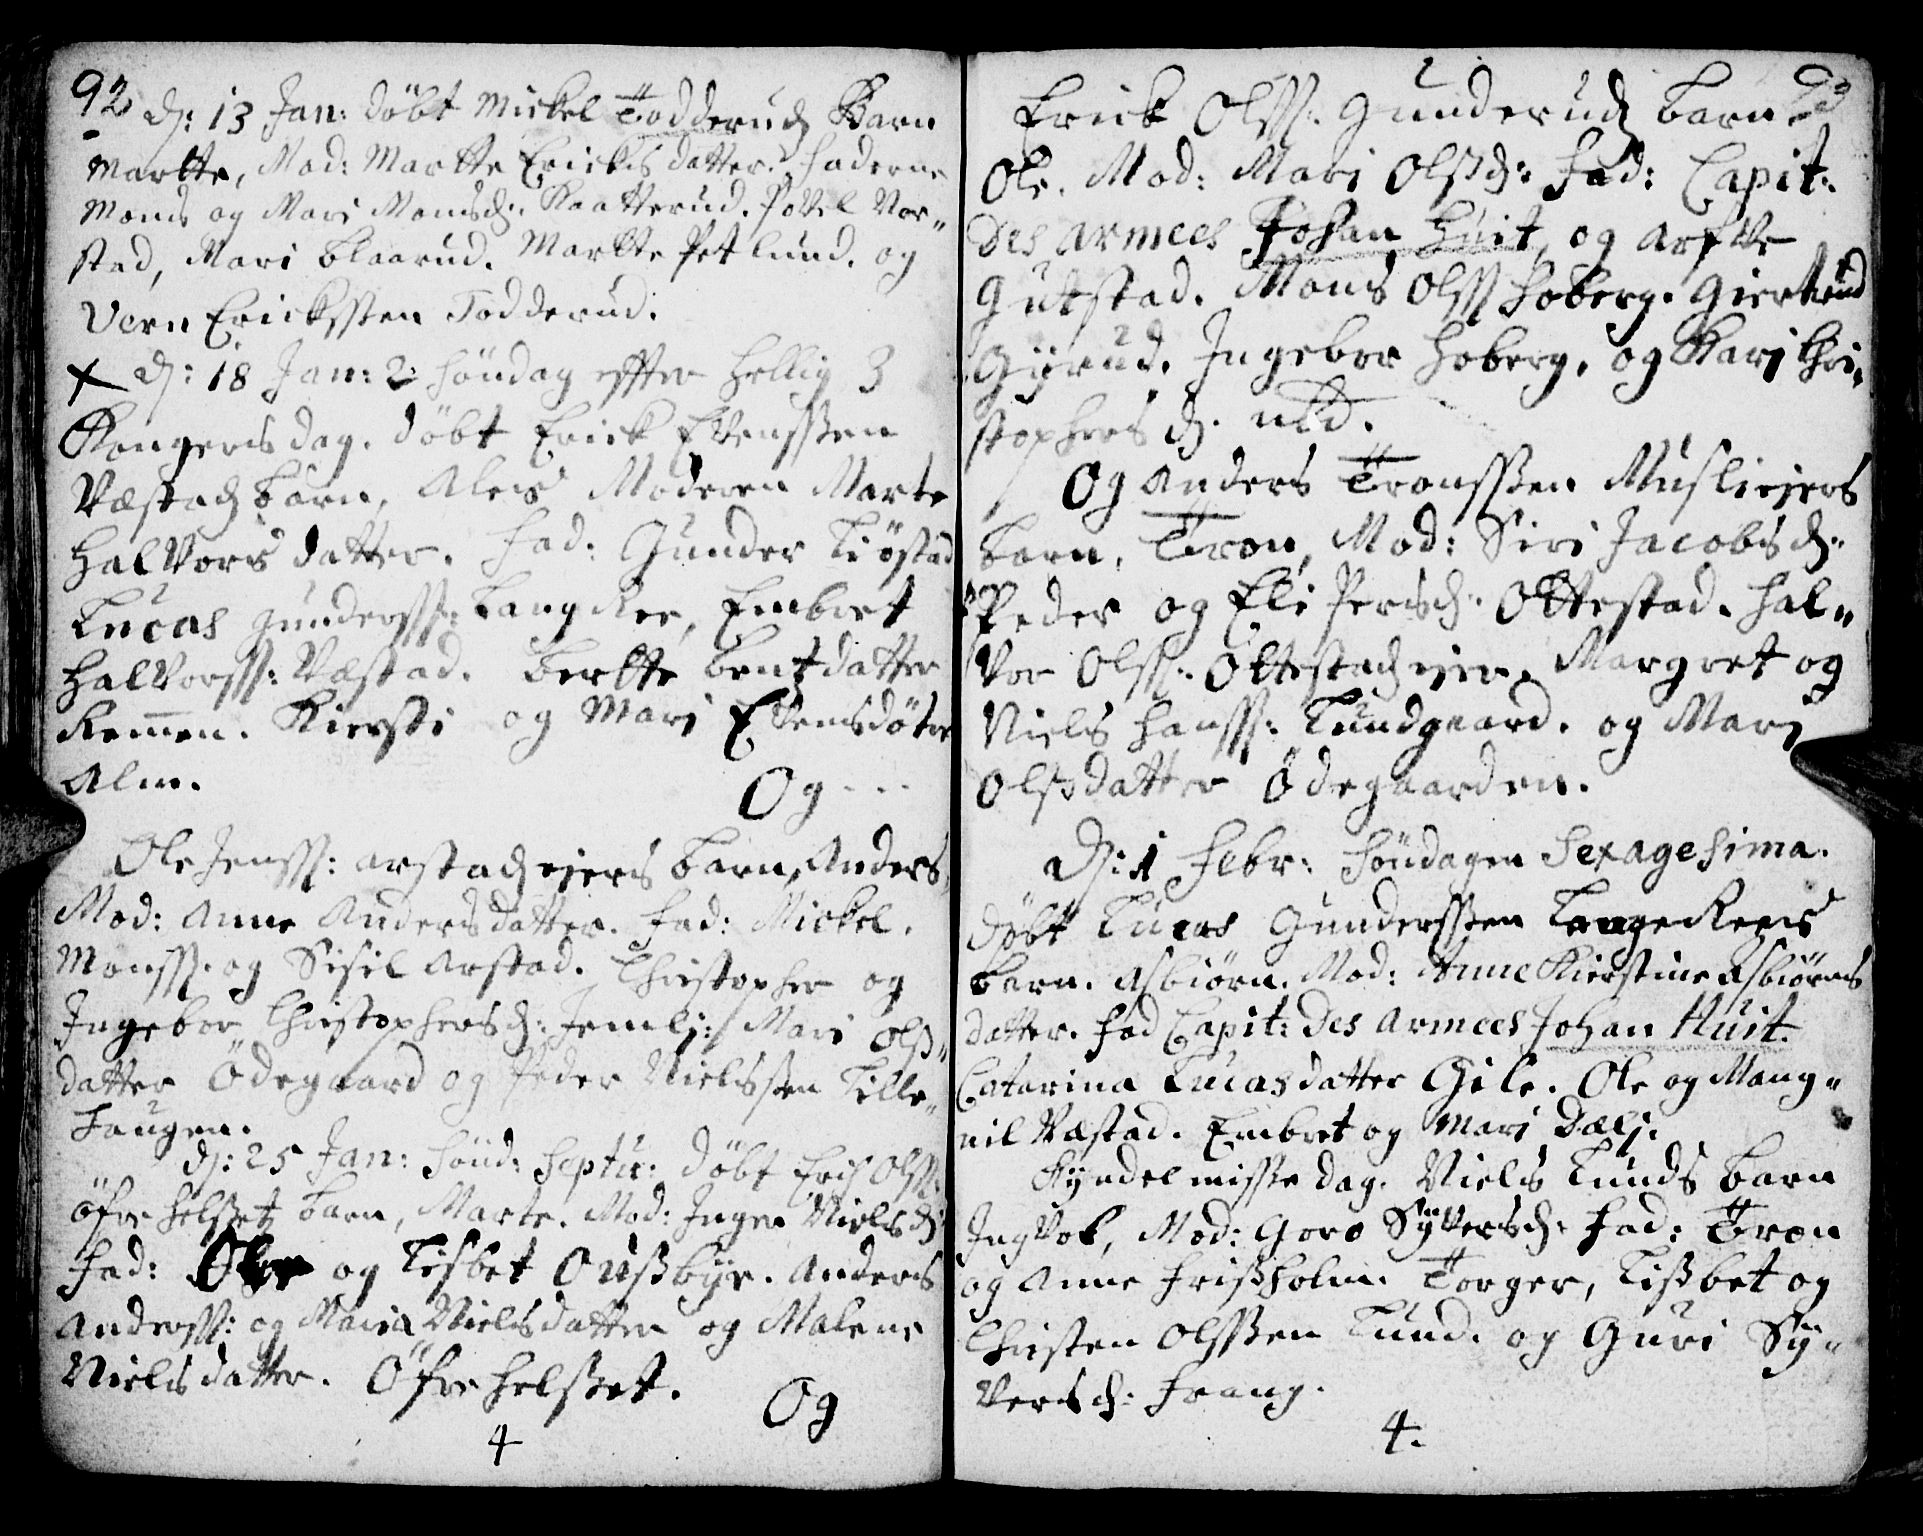 92
Dj: 13 Jan: döbt Mickel Todderuds Barn
Martte, Mod: Martte Ericks datter. Faderne
Mons og Mari Monsd: Kaatterud. Povel Vor„
stad, Mari Blaarud. Martte Petlund. og
Vern Erickssen Todderud.
x Dj: 18 Jan: 2 Söndag effter Hellig 3
Kongers dag. döbt Erick Evenssen
Væstads barn, Aleis Moderen Marte
Halvors datter. Fad: Gunder Kiöstad
Lucas Gunderss: Langeree, Embret
Halvorss: Væstad. Bertte Bentzdatter
Remmen. Kiersti og Mari Evensdötre
Alm.
Og - - -
Ole Jenss: Arstadeiers barn, Anders,
Mod: Anne Andersdatter. Fad: Mickel.
Monss. og Sisil Arstad. Christopher og
Ingebor Christophersd: Jemli: Mari Olss„
datter Ödegaard og Peder Nielssen Lille„
haugen.
Dj: 25 Jan: Sönd: Septu: döbt Erich Olss.
öfre Helsets barn, Marte. Mod: Inger Nielsd:
Fad: Ole og Lisbet Ousbye. Anders
Anderss: og Maria Nielsdatter og Malene
Nielsdatter. Öfre Helsset.
Og
4
93
Erick Olss. Gunderuds barn
Ole. Mod: Mari Olssd: Fad: Capit:
des Armees Johan Huit, og Arfve
Gutstad. Mons Olss Hoberg. Giertrud
Gyrud. Ingebor Hoberg. og Kari Chri„
stophersd.
Og Anders Tronssen Muslieiers
barn, Tron, Mod: Siri Jacobsd:
Peder og Eli Persd: Ottestad. Hal„
vor Olss: Ottestadeier. Margret og
Niels Hanss: Lundgaard. og Mari
Olssdatter Ödegaarden.
Dj: 1 Febr: Söndagen Sexagesima.
döbt Lucas Gunderssen Langerees
barn. Asbiörn. Mod: Anne Kierstine Asbiörns
datter. Fad Capit: des Armees Johan Huit.
Catarina Lucasdatter Gile. Ole og Mang„
nil Væstad. Embret og Mari Dæli.
Kyndelmisse dag. Niels Lunds barn
Ingvol, Mod: Goro Syversd: Fad: Tron
og Anne Frissholm. Torger, Lissbet og
Christen Olssen Lund. og Guri Sy„
versd: Frang.
4.